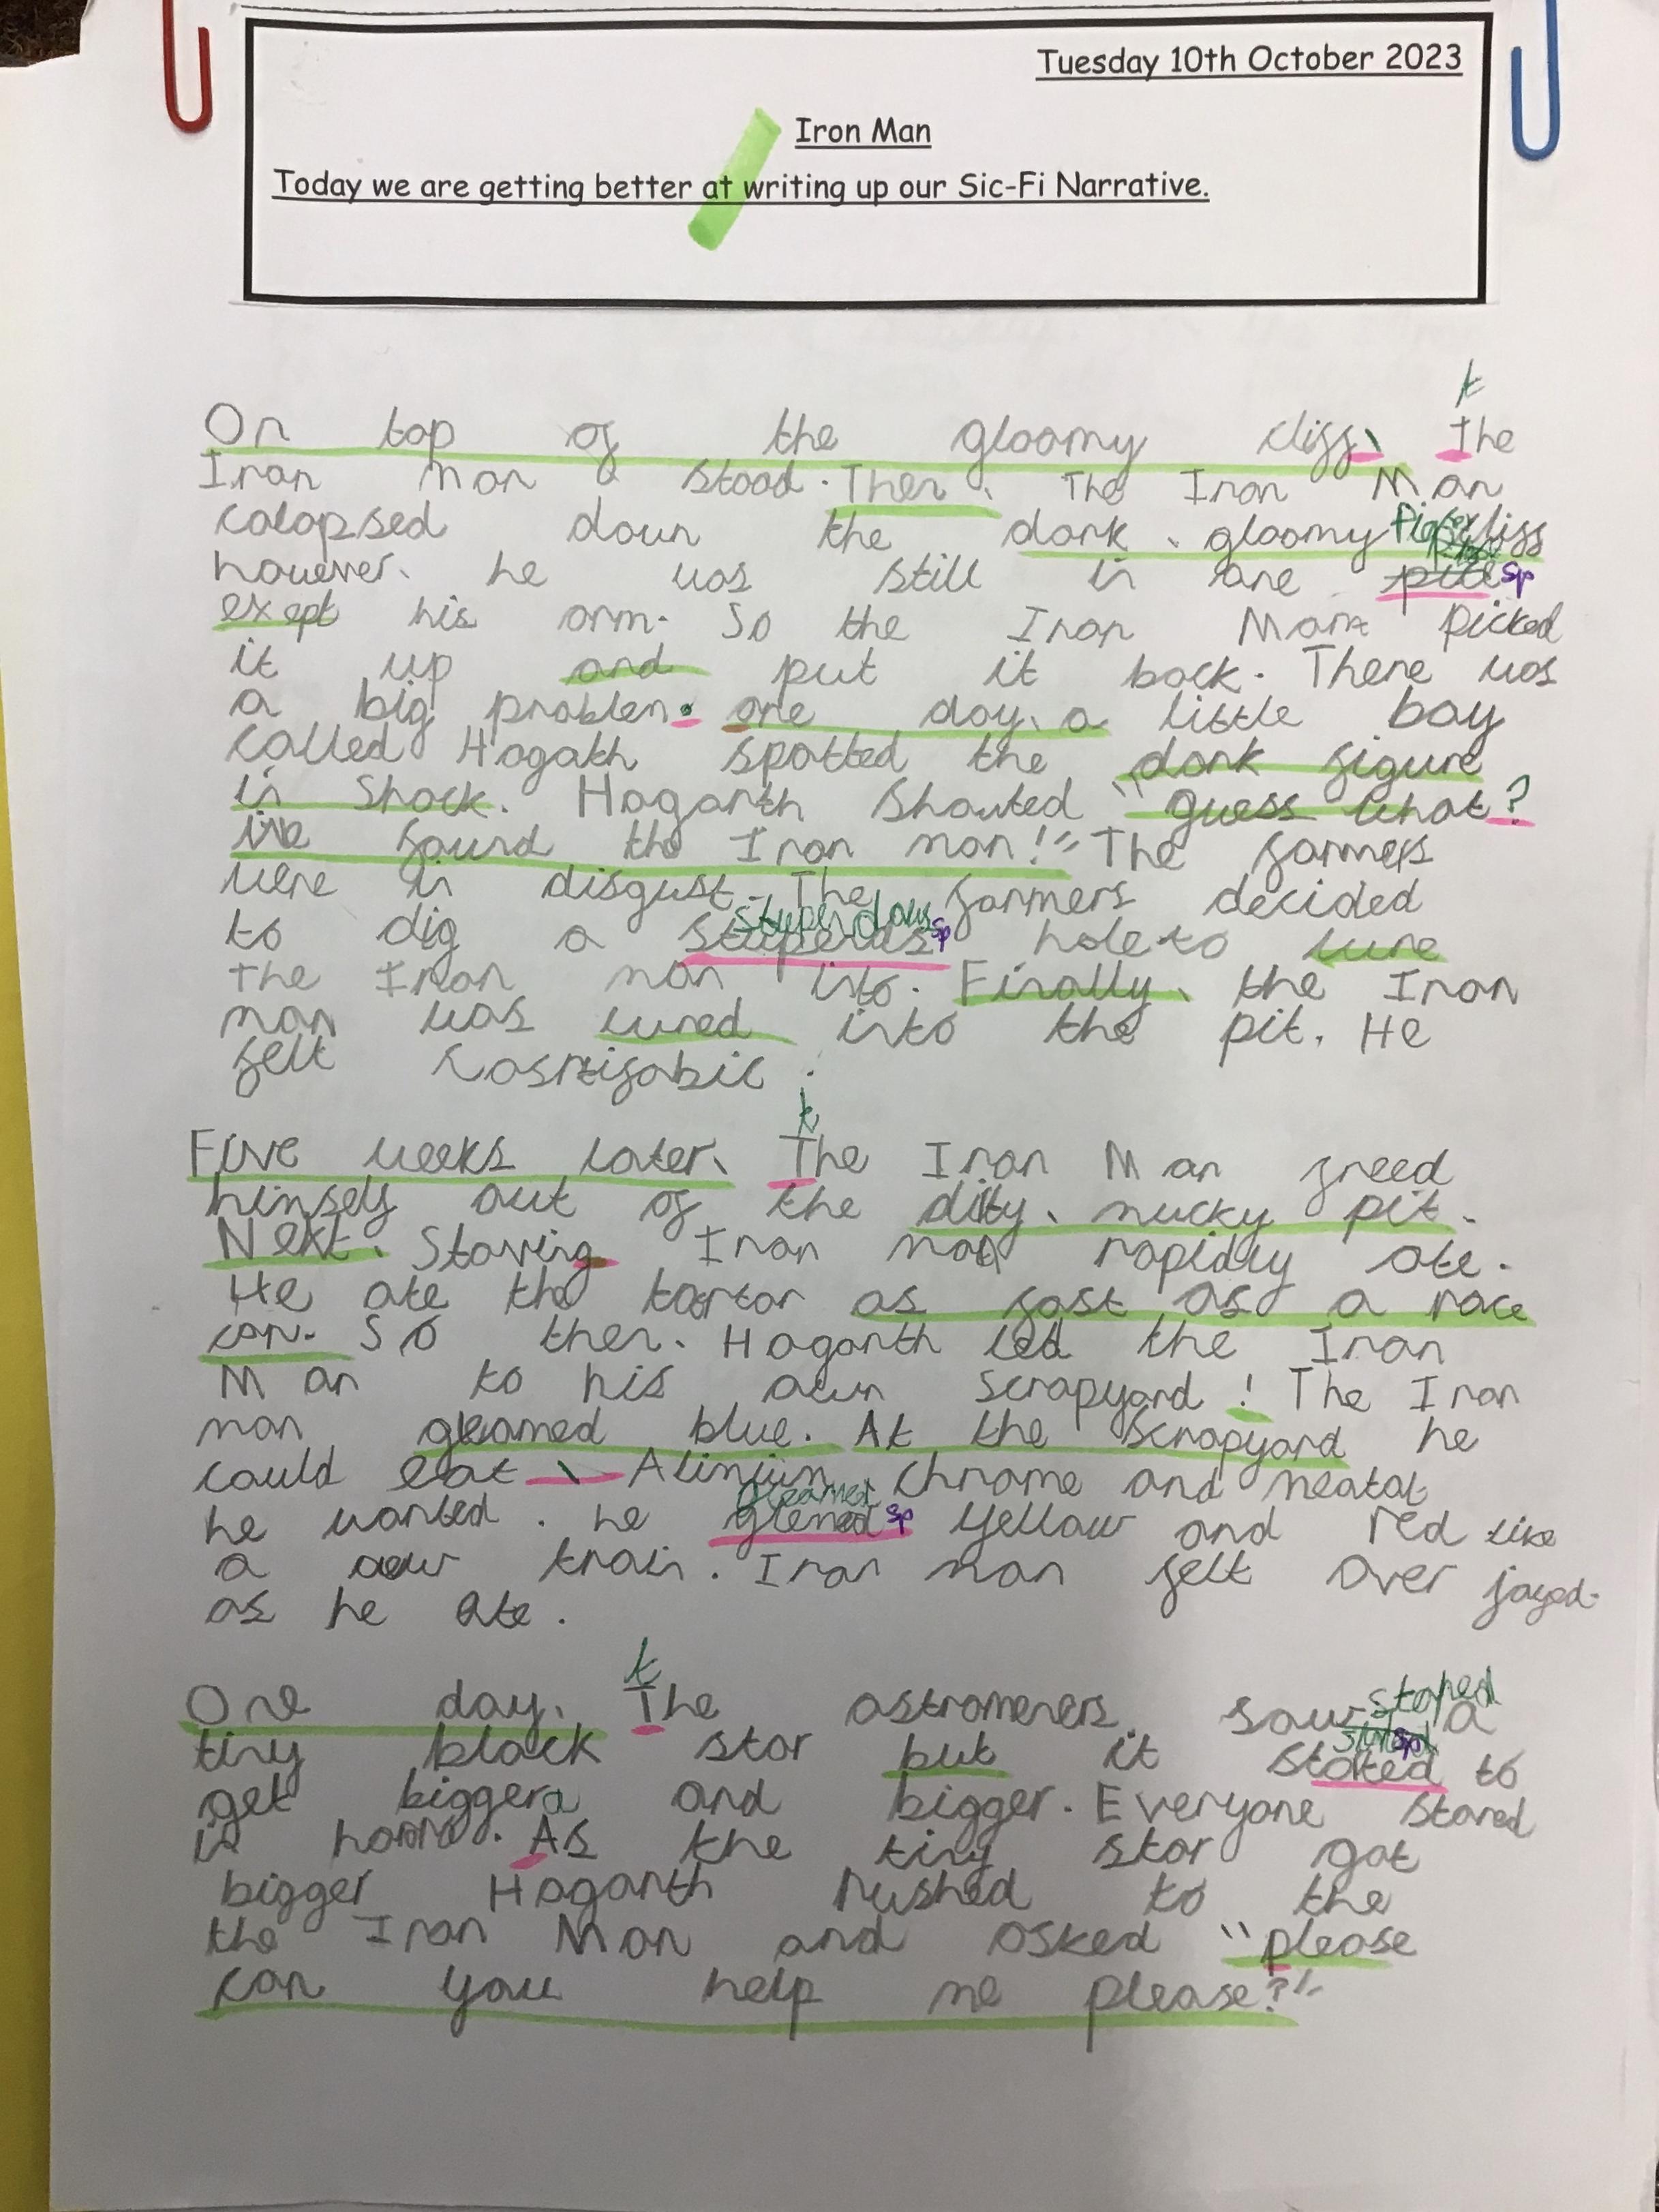 Tuesday 10th October 2023
Iron Man
Today we are getting better at writing up our Sic-Fi Narrative.
t
On top of the gloomy cliff, The
Iron Man stood. Then, The Iron Man
colapsed down the dark, gloomy cliff
however, he was still in one sp
exept his arm. So the Iron Man picked
it up and put it back. There was
a big problem. one day, a little boy
called Hogath spotted the dark figure
in Shock. Hogarth shouted "guess what?
ive found the Iron man!" The farmers
were in disgust. The farmers decided
stuperdous
to dig a stuperus sp hole to lure
the Iron man into. Finally, the Iron
man was lured into the pit. He
felt
t
Five weeks later, The Iron Man freed
himself out of the dity, mucky pit.
Next, Staving Iron man rapidly ate.
He ate the tractor as fast as a race
car. So then, Hogarth led the Iron
Man to his own scrapyard! The Iron
man gleamed blue. At the scrapyard he
could eat, Alinium, chrome and meatal
gleamed
he wanted. he glemed sp yellow and red like
a new train. Iron man felt over joyed
as he ate.
t
One day, The astromeners saw a
staped
tiny black star but it stated sp to
get bigger and bigger. Everyone stared
in horro. As the tiny star got
a
bigger Hogarth rushed to the
the Iron Man and asked "please
can you help me please?"